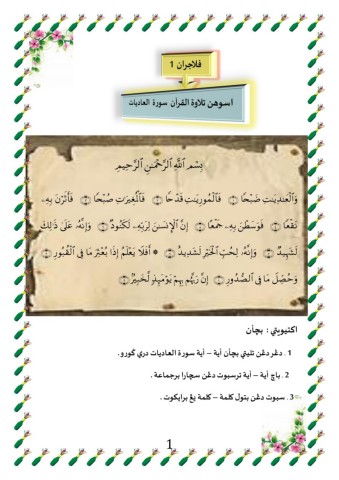 فلاجران 1
اسوهن تلاوة القرآن سورة العاديات
بِسْمِ ٱللَّهِ ٱلرَّحْمَـٰنِ ٱلرَّحِيمِ
وَٱلْعَـٰدِيَـٰتِ ضَبْحًا ۝ فَٱلْمُورِيَـٰتِ قَدْحًا ۝ فَٱلْمُغِيرَٰتِ صُبْحًا ۝ فَأَثَرْنَ بِهِۦ
نَقْعًا ۝ فَوَسَطْنَ بِهِۦ جَمْعًا ۝ إِنَّ ٱلْإِنسَـٰنَ لِرَبِّهِۦ لَكَنُودٌ ۝ وَإِنَّهُۥ عَلَىٰ ذَٰلِكَ
لَشَهِيدٌ ۝ وَإِنَّهُۥ لِحُبِّ ٱلْخَيْرِ لَشَدِيدٌ ۝ ۞ أَفَلَا يَعْلَمُ إِذَا بُعْثِرَ مَا فِى ٱلْقُبُورِ ۝
وَحُصِّلَ مَا فِى ٱلصُّدُورِ ۝ إِنَّ رَبَّهُم بِهِمْ يَوْمَئِذٍ لَّخَبِيرٌۢ ۝
اکتيويتي : بچأن
1 . دڠر دڠن تليتي بچأن أية – أية سورة العاديات دري ݢورو.
2 . باچ أية – أية ترسبوت دڠن سچارا برجماعة .
3 . سبوت دڠن بتول کلمة – کلمة يڠ برايکوت .
1